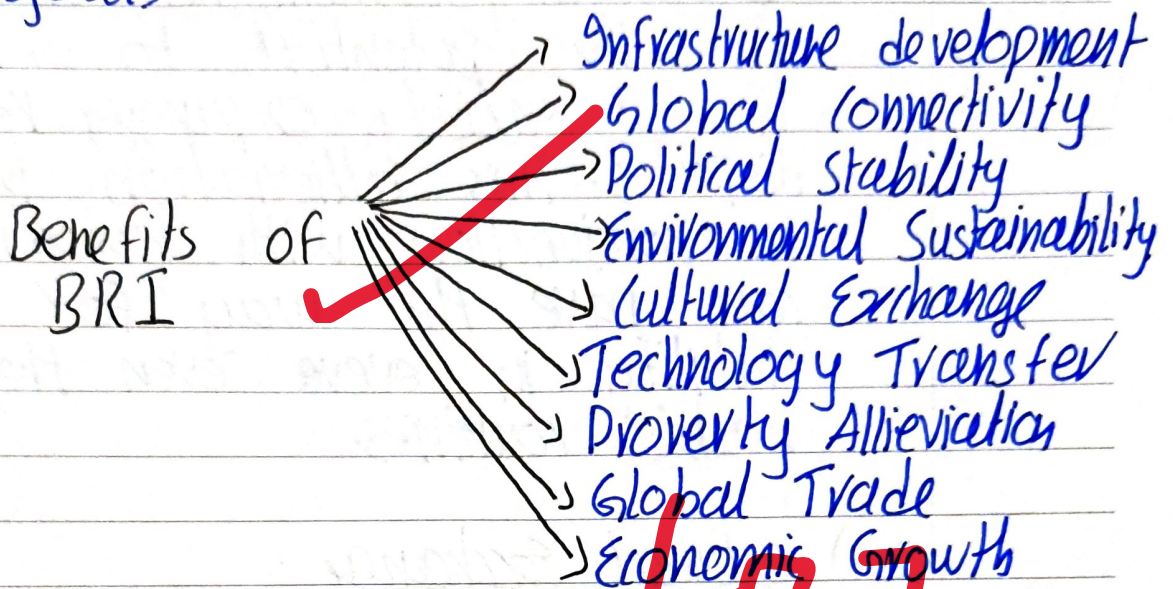 Infrastructure development
Global Connectivity
Political Stability
Benefits of
BRI
Environmental Sustainability
Cultural Exchange
Technology Transfer
Proverty Allieviation
Global Trade
Economic Growth